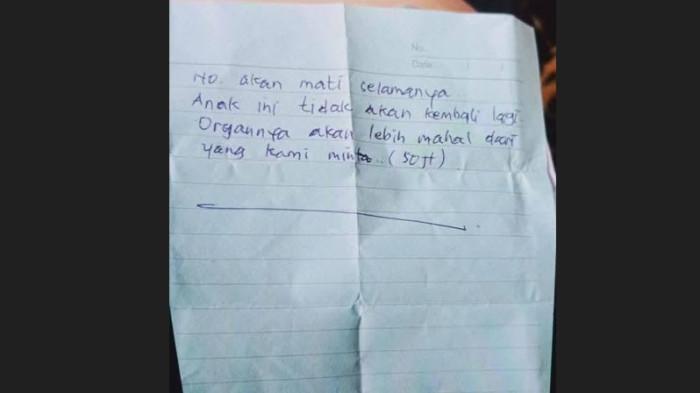 No.
Date
No. akan mati selamanya
Anak ini tidak akan kembali lagi.
Organnya akan lebih mahal dari
yang kami minta.. (50jt)